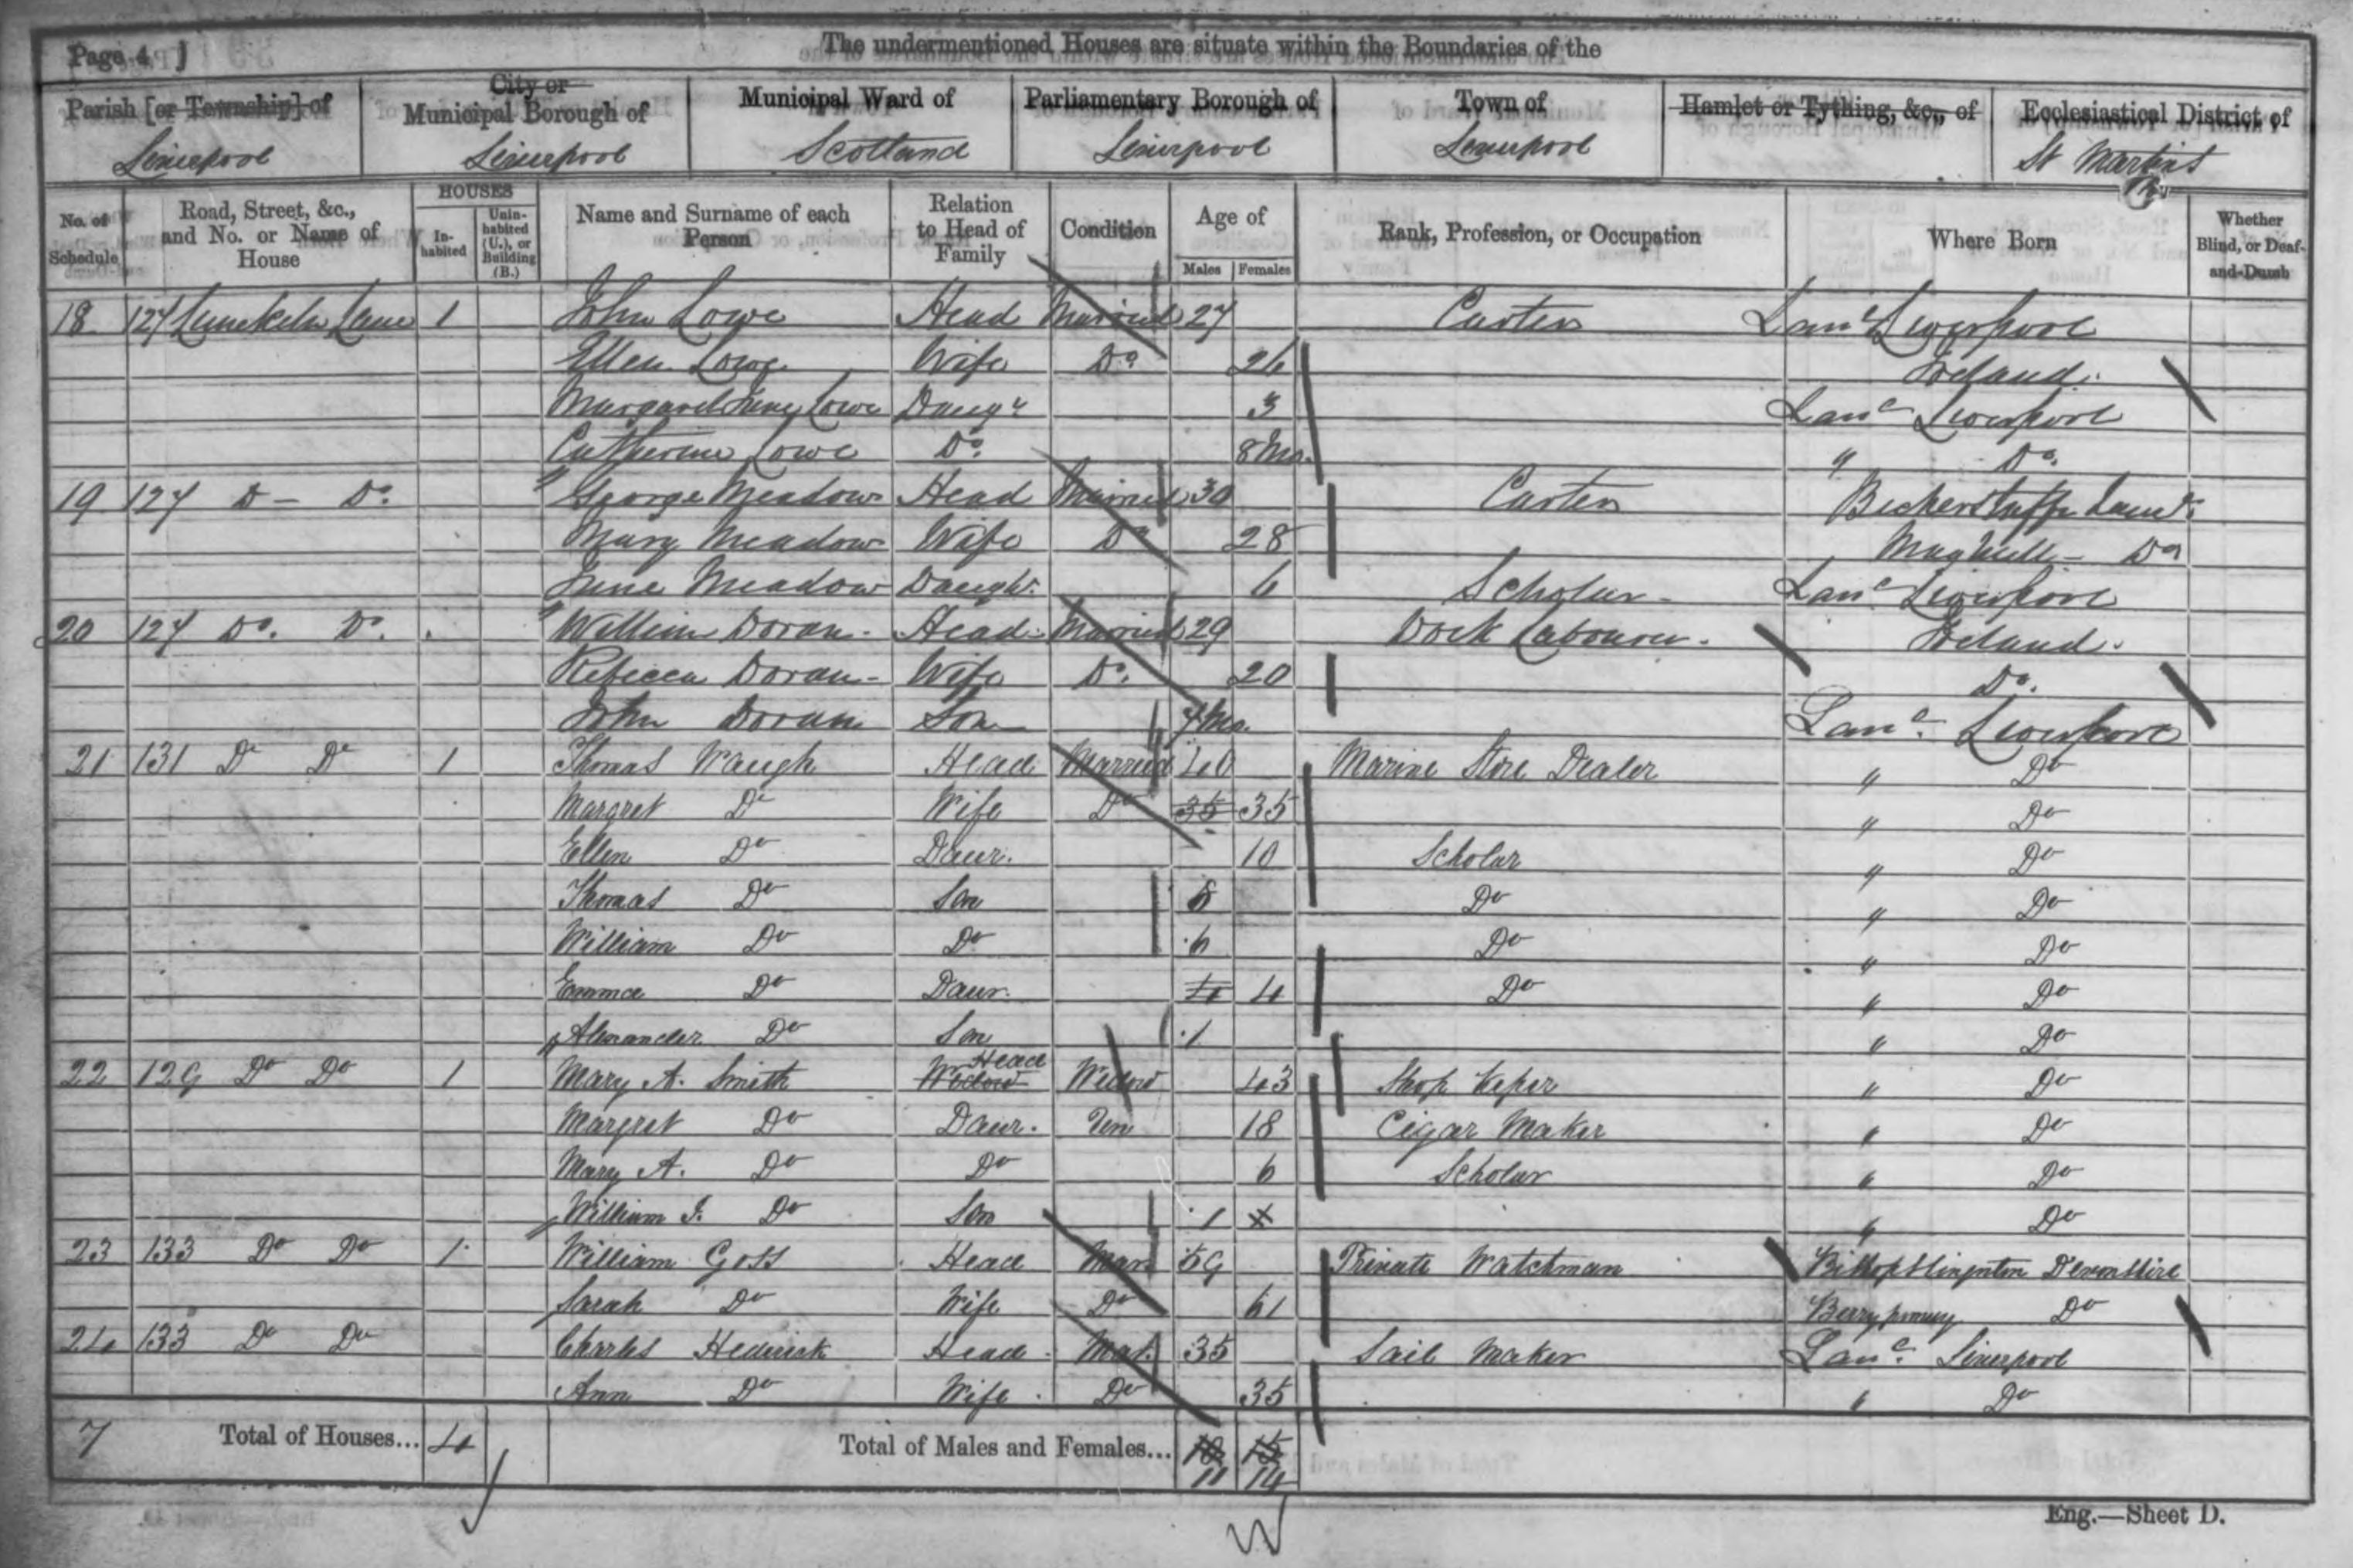 Page 4 ]
The undermentioned Houses are situate within the Boundaries of the
Parish [or Township] of
City or Municipal Borough of
Municipal Ward of
Parliamentary Borough of
Town of
Hamlet or Tything, &c., of
Ecclesiastical District of
Liverpool Liverpool Scotland Liverpool Liverpool St Martins
No. of Schedule
Road, Street, &c., and No. or Name of House
HOUSES
In-habited
Unin-habited (U.), or Building (B.)
Name and Surname of each Person
Relation to Head of Family
Condition
Age of
Males Females
Rank, Profession, or Occupation
Where Born
Whether Blind, or Deaf-and-Dumb
18 127 Lane 1 John Lowe Head Married 27 Carter Lanc Liverpool
Ellen Lowe Wife Do 26 Ireland.
Margaret Jane Lowe Daugr 3 Lanc Liverpool
Catherine Lowe Do. 8 Mo. " Do.
19 127 D- Do. George Meadow Head Married 30 Carter Bickerstaffe Lanc.
Mary Meadow Wife Do 28 Maghull - Do
Jane Meadow Daughr. 6 Scholar - Lanc. Liverpool
20 127 Do. Do. William Doran - Head - Married 29 Dock Labourer. Ireland.
Rebecca Doran - Wife Do. 20 Do.
John Doran Son 7 Mo. Lanc. Liverpool
21 131 Do Do 1 Thomas Waugh Head Married 40 Marine Store Dealer " Do
Margret Do Wife Do 35 35 " Do
Ellen Do Daur. 10 Scholar " Do
Thomas Do Son 8 Do " Do
William Do Do 6 Do " Do
Emma Do Daur. 4 4 Do " Do
Alexander Do Son 1 " Do
22 129 Do Do 1 Mary A. Smith Widow Head Widow 43 Shop Keper " Do
Margret Do Daur. Un 18 Cigar Maker " Do
Mary A. Do Do 6 Scholar " Do
William J. Do Son 1 " Do
23 133 Do Do 1 William Goss Head Mar 59 Private Watchman Devonshire
Sarah Do Wife Do 61 Do
24 133 Do Do Charles Head Mar. 35 Sail Maker Lanc. Liverpool
Ann Do Wife Do 35 " Do
7 Total of Houses... 4 Total of Males and Females... 10 15
11 14
Eng.—Sheet D.